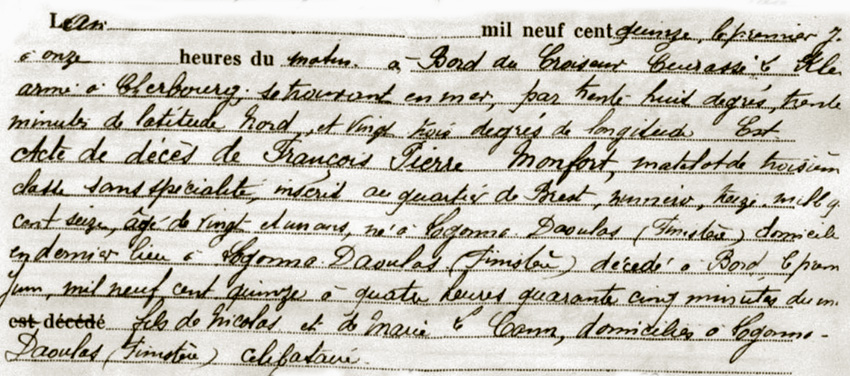 L'an mil neuf cent quinze, le premier
à onze heures du matin à Bord du Croiseur Cuirassé le Klé
armé à Cherbourg, se trouvant en mer, par trente huit degrés, trente
minutes de latitude Nord, et vingt trois degrés de longitude Est
Acte de décès de François Pierre Monfort, matelot de troisièm
classe sans spécialité, inscrit au quartier de Brest, numéro, treize mille q
cent seize, âgé de vingt et un ans, né à Logonna Daoulas (Finistère) domicile
en dernier lieu à Logonna Daoulas (Finistère) décédé à Bord le prem
juin, mil neuf cent quinze à quatre heures quarante cinq minutes du m
est décédé fils de Nicolas et de Marie Le Cann, domiciliés à Logonna-
Daoulas (Finistère) célibataire.